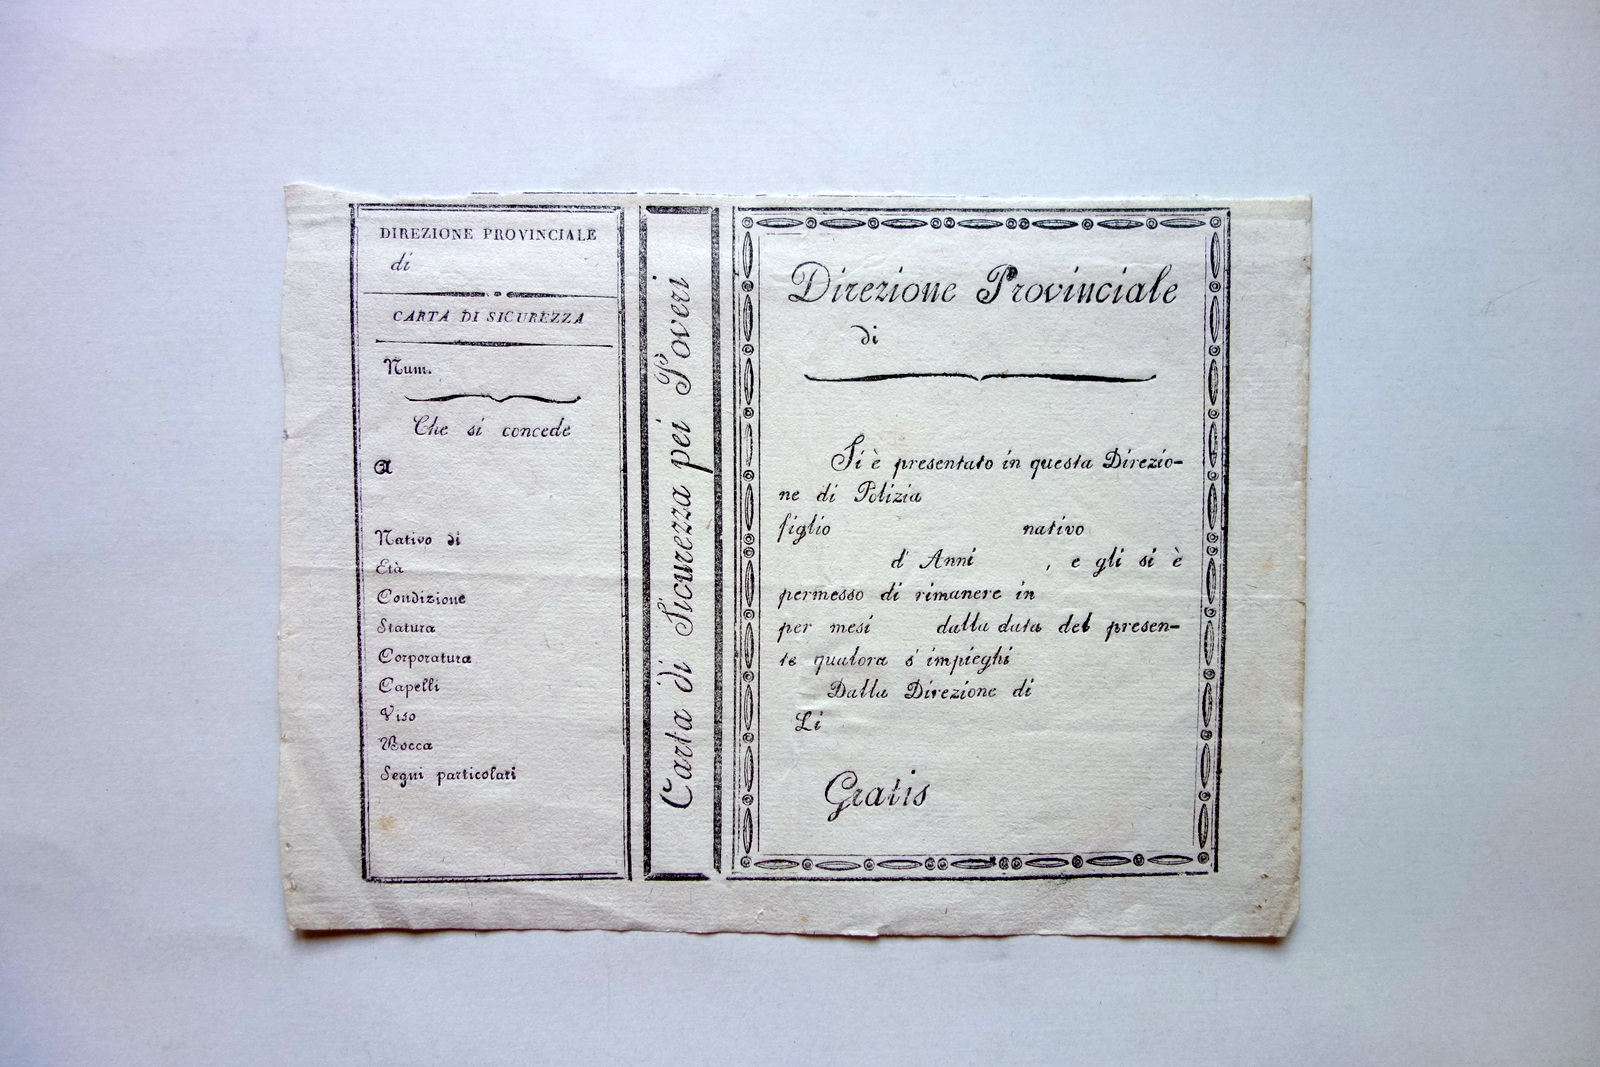 DIREZIONE PROVINCIALE
di
CARTA DI SICUREZZA
Num.
Che si concede
A
Nativo di
Età
Condizione
Statura
Corporatura
Capelli
Viso
Bocca
Segni particolari
Carta di Sicurezza pei Poveri
Direzione Provinciale
di
Si è presentato in questa Direzio-
ne di Polizia
figlio nativo
d' Anni , e gli si è
permesso di rimanere in
per mesi dalla data del presen-
te qualora s' impieghi
Dalla Direzione di
Li
Gratis